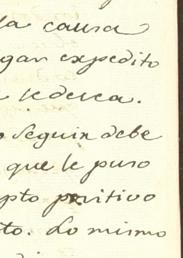 la causa
gan expedito
se decea.
o Seguin debe
que le puso
pto positivo
to. Lo mismo